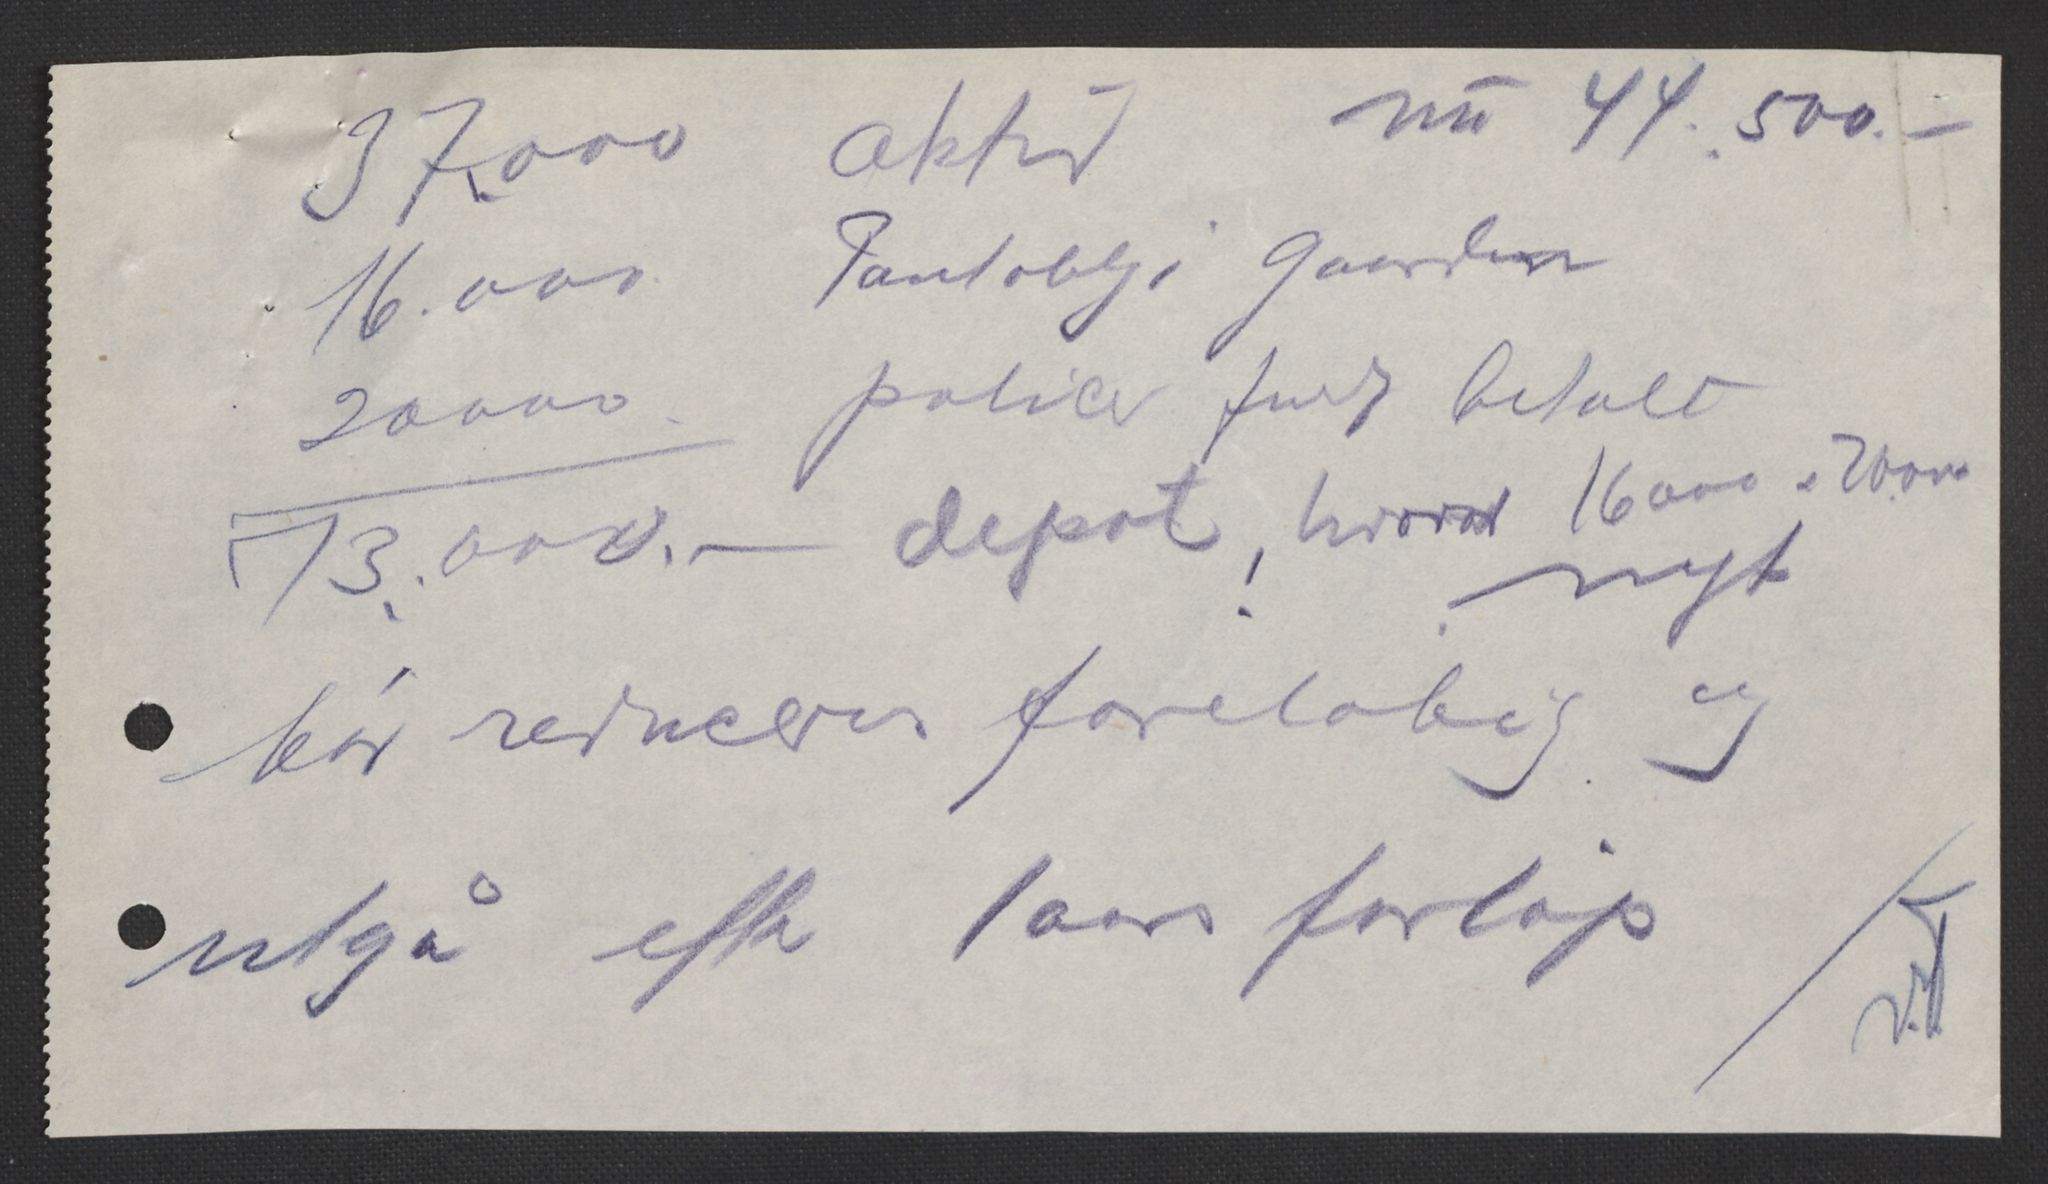 37.000 aktiv nu 44.500.-
16.000 Pantobl. i Gaarden
20000. police fuldt betalt
73.000.- depot, hvorav 16000 + 20.000
! nyt
bør reduceres foreløbig og
utgå efter 1 aars forløp